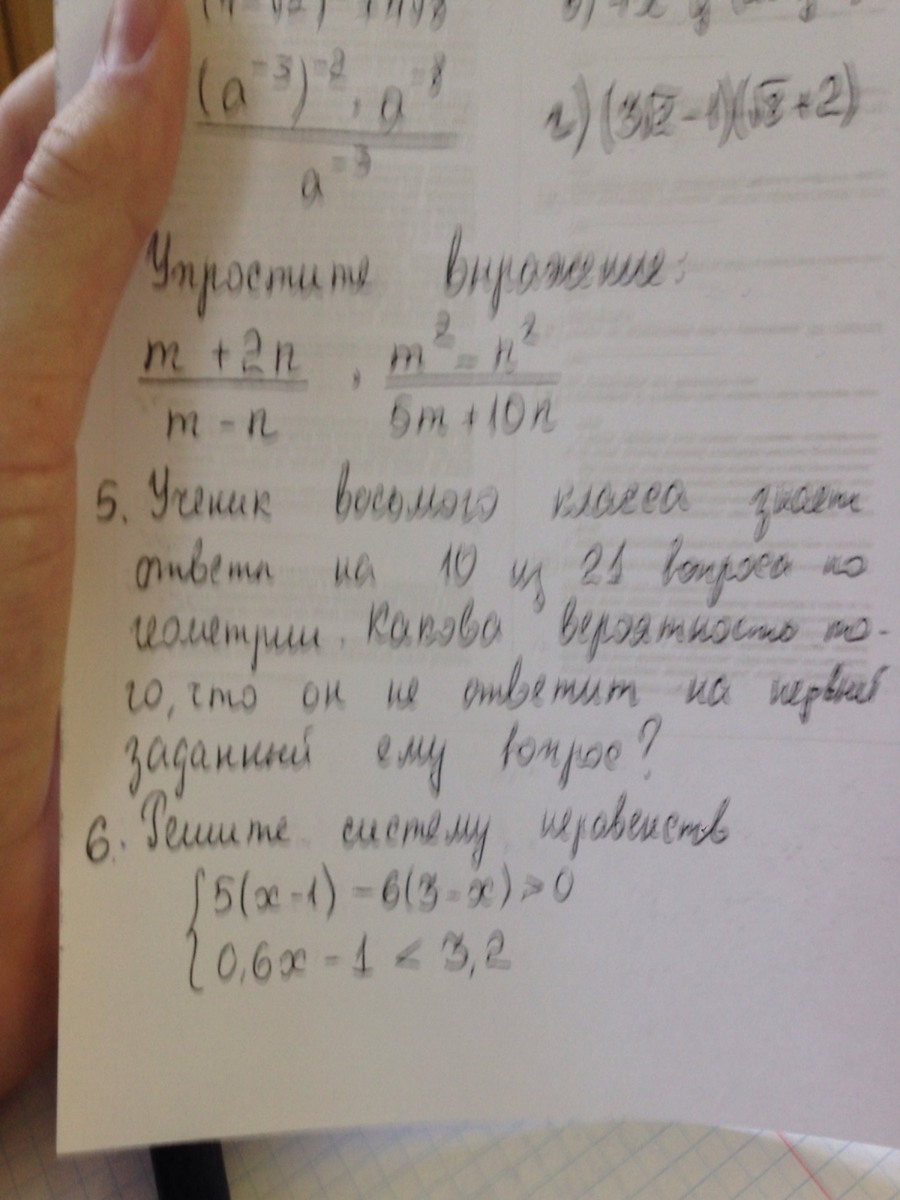 (a⁻³)⁻² · a⁻⁸
a⁻³
г) (3√2 - 1)(√2 + 2)
Упростите выражение:
m + 2n / m - n · m² - n² / 5m + 10n
5. Ученик восьмого класса знает
ответы на 10 из 21 вопроса по
геометрии. Какова вероятность то-
го, что он не ответит на первый
заданный ему вопрос?
6. Решите систему неравенств
5(x - 1) - 6(3 - x) > 0
0,6x - 1 < 3,2